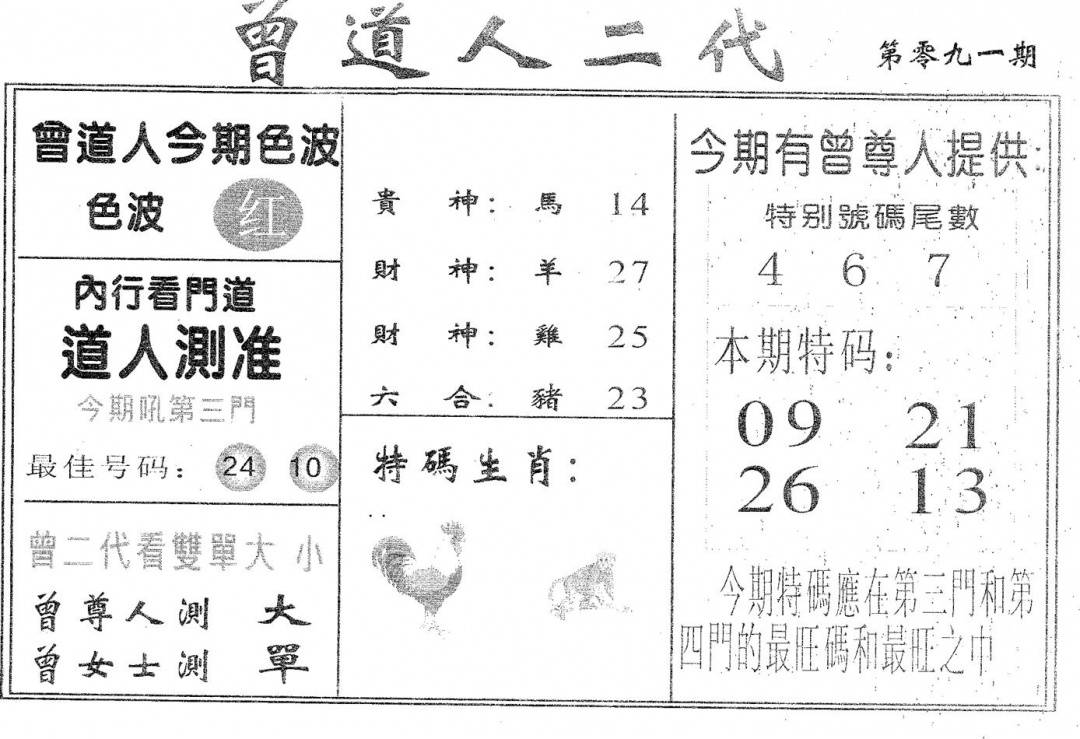 曾道人二代
第零九一期
曾道人今期色波
色波 红
內行看門道
道人測准
今期吼第三門
最佳号码: 24 10
曾二代看雙單大 小
曾尊人測 大
曾女士測 單
貴 神: 馬 14
財 神: 羊 27
財 神: 雞 25
六 合: 豬 23
特碼生肖:
今期有曾尊人提供:
特别號碼尾數
4 6 7
本期特码:
09 21
26 13
今期特碼應在第三門和第
四門的最旺碼和最旺之中